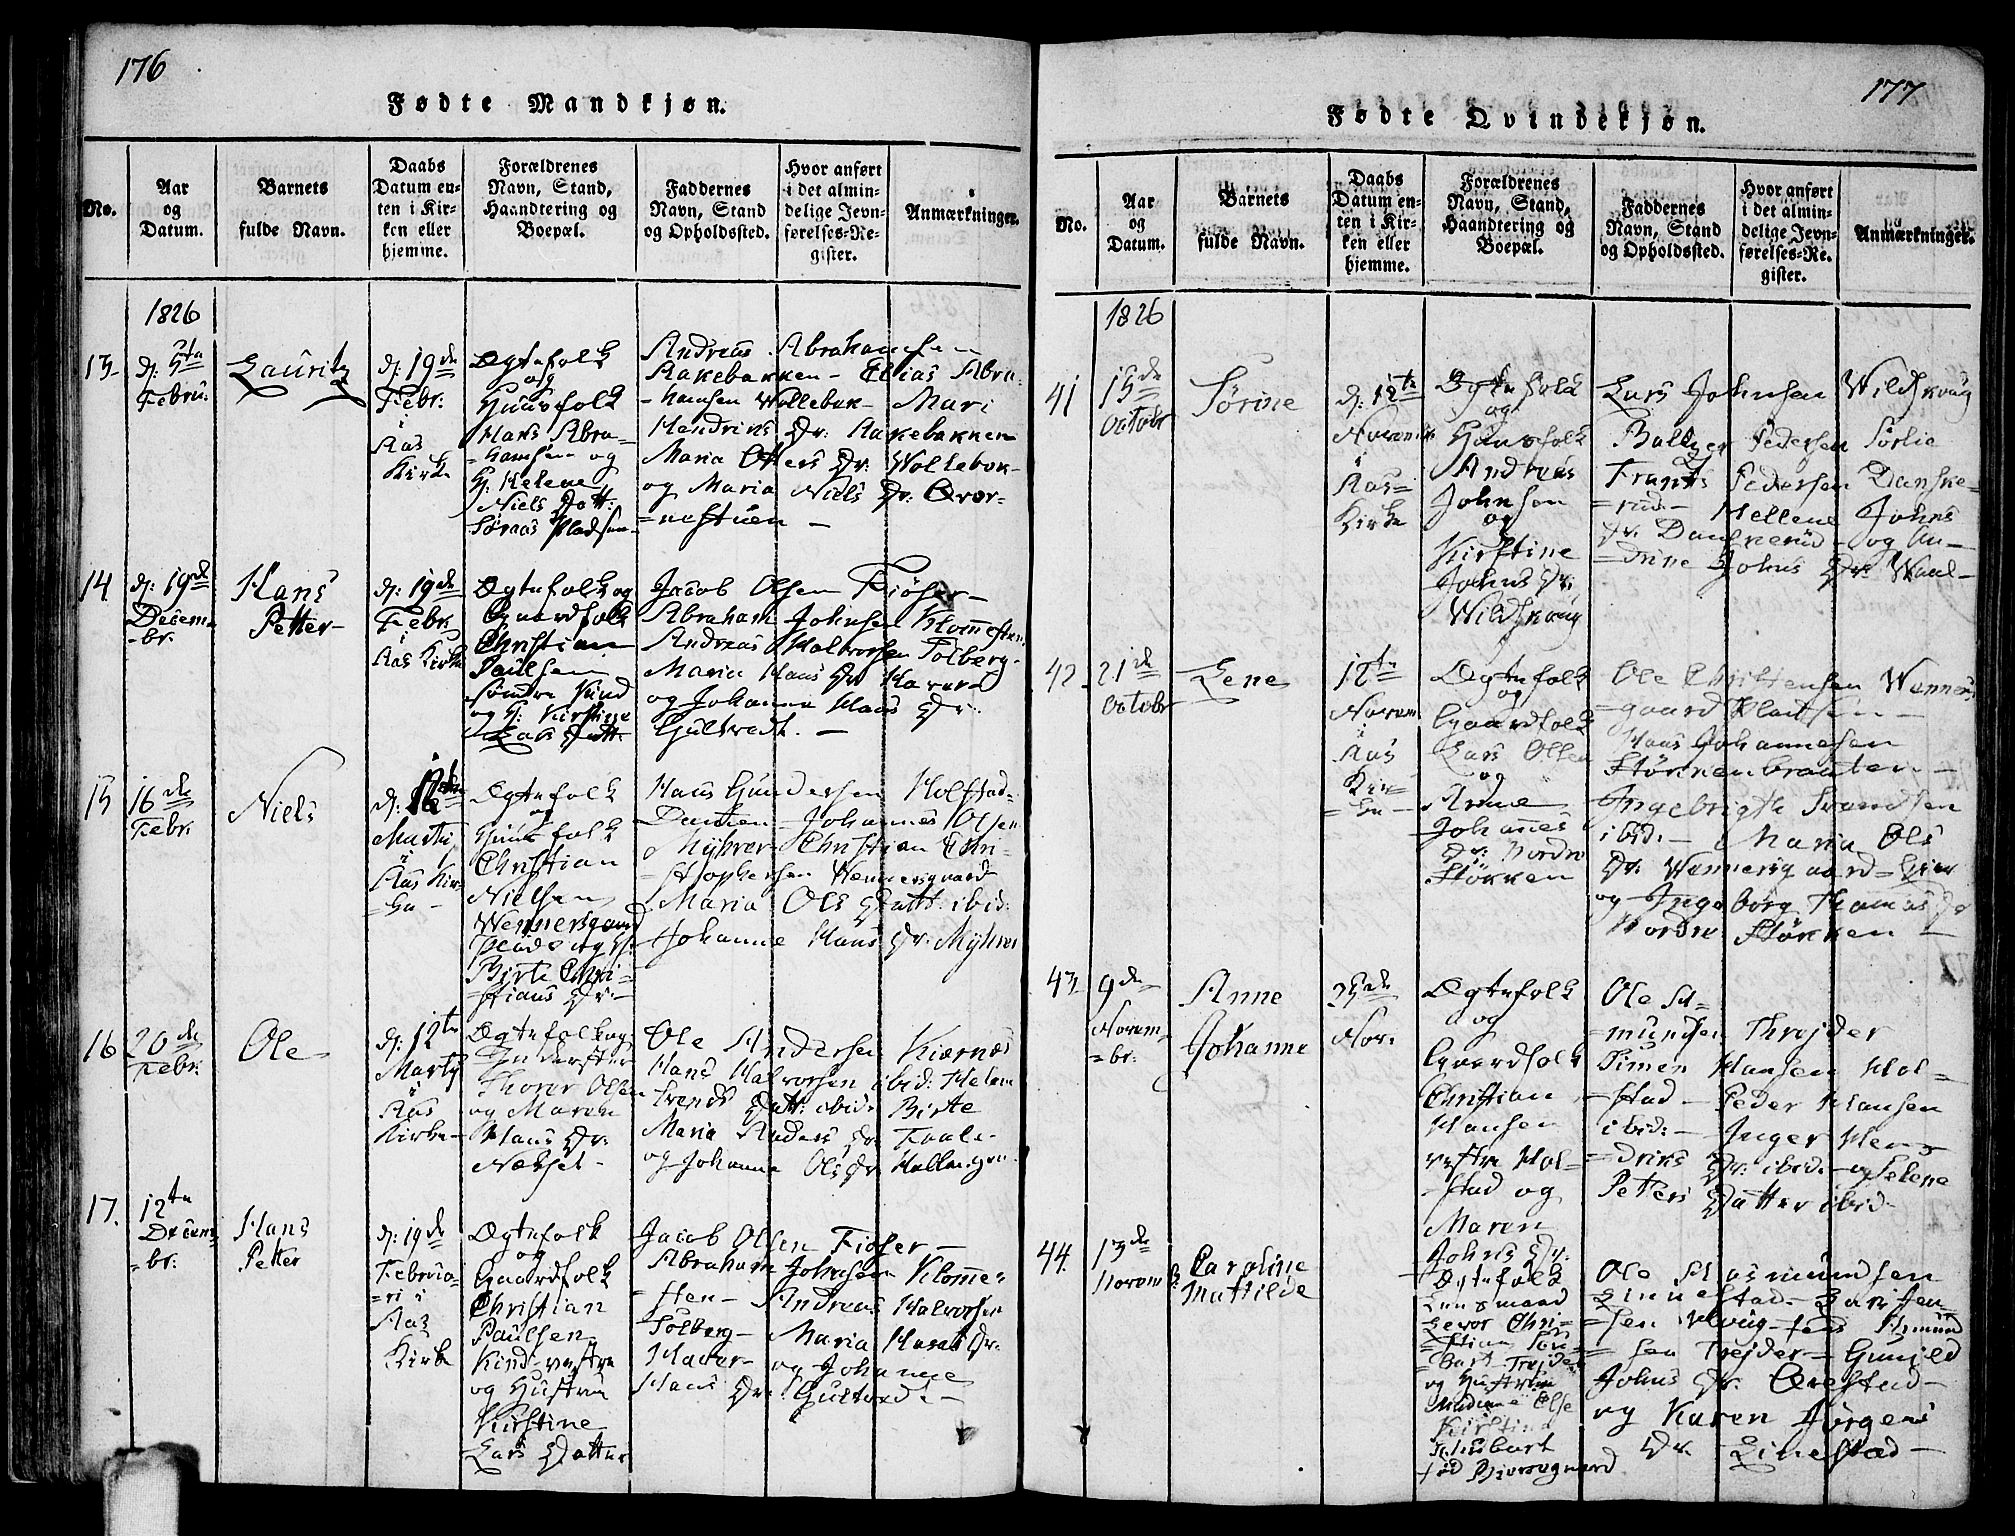 176
Fødte Mandkjøn.
No.
Aar
og
Datum.
Barnets
fulde Navn.
Daabs
Datum en-
ten i Kir-
ken eller
hjemme.
Forældrenes
Navn, Stand,
Haandtering og
Boepæl.
Faddernes
Navn, Stand
og Opholdssted.
Hvor anført
i det almin-
delige Jevn-
førelses-Re-
gister.
Anmærkninger.
1826
13
d: 5te
Febru:
Lauritz
d: 19de
Febr:
i
Aas
Kirke
Ægtefolk
og
Huusfolk
Hans Abra-
-hamsen og
H: Helene
Niels Datt:
Søraas Pladsen
Andreas Abrahamsen
Aakebakken - Elias Abra-
-hamsen Wollebæk - Mari
Hendrins Dr: Aakebakken
Maria Dr: Wollebæk-
og Maria Niels Dr: Over-
=nestuen -
14
d: 19de
Decem-
-br.
Hans
Petter
d: 19de
Febr.
i
Aas Kirke
Ægtefolk og
Gaardfolk
Christian
Paulsen
Søndre Kind
og H: Kirstine
Lars Datt:
Jacob Olsen Fiøser -
Abraham Johnsen Klommesten
Andreas Halvorsen Solberg-
Maria Hans Dr Haver
og Johanne Hans Dr.
Gultvedt. -
15
16de
Febr.
Niels
d: 12te
Martii
i
Aas Kir-
=ke -
Ægtefolk
og
Huusfolk
Christian
Nielsen
Wennersgaard
Plads og H:
Birte Chri-
=stians Dr:
Hans Gundersen Holstad-
Dammen - Johannes Olsen
Myhrer - Christian Chri-
=stophersen Wennersgaard
Maria Ols Datt: ibid:
Johanne Hans Dr: Myhrer
16
20de
Febr.
Ole
d: 12te
Marty
i
Aas
Kirke -
Ægtefolk og
Thorer Olsen
og Maren
Hans Dr:
Næhset -
Ole Andersen Kiærnæs
Hans Halvorsen ibid: Helene
Datt: ibid: Birte
Maria Anders Dr:
og Johanne Ols Dr
17.
12te
Decem-
=br:
Hans
Petter
d: 19de
Februa-
=ri i
Aas
Kirke
Ægtefolk
og
Gaardfolk
Christian
Paulsen
Kind vestre
og Hustru
Kirstine
Lars Datter
Jacob Olsen Fiøser -
Abraham Johnsen Klomme-
=sten - Andreas Halvorsen
Solberg - Maria Hans Dr.
Haver - og Johanne
Hans Dr: Gultvedt -
177
Fødte Qvindekjøn.
No.
Aar
og
Datum.
Barnets
fulde Navn.
Daabs
Datum en-
ten i Kir-
ken eller
hjemme.
Forældrenes
Navn, Stand,
Haandtering og
Boepæl.
Faddernes
Navn, Stand
og Opholdssted.
Hvor anført
i det almin-
delige Jevn-
førelses-Re-
gister.
Anmærkninger.
1826
41
15de
Octobr
Sørine
d: 12te
Novembr
i
Aas-
Kirke
Ægtefolk
og
Huusfolk
Andreas
Johnsen
og
Kirstine
Johns Dr:
Wildskoug
Lars Johnsen Wildskoug
Baltzer Pedersen Sørlie
Frants Pedersen Danske-
=rud - Hellene Johns
Dr. Danskerud - og An-
=drine Johns Dr: Waal-
42.
21de
Octobr
Lene
12te
Novem
i
Aas
Kir-
=ke -
Ægtefolk
og
Gaardfolk
Lars Olsen
og
Anne
Johannes
Dr: Nordre
Støkken
Ole Christensen Wenners-
=gaard Pladsen -
Hans Johannesen
Støkkenbraaten -
Ingebrigth Svendsen
ibid: - Maria Ols
Dr: Wennersgaard -
og Ingeborg Thomas Dr
Nordre Støkken -
43.
9de
Novem-
=br:
Anne
Johanne
25de
Nov:
Ægtefolk
og
Gaardfolk
Christian
Hansen
vestre Hol-
=stad og
Maren
Johns Dr:
Ole As-
=mundsen Threjder
Simen Hansen Hol-
-stad - Peder Hansen
ibid: - Inger Hen-
=driks Dr: ibid. - og Helene
Peters Datter ibid -
44.
13de
Novembr
Caroline
Mathilde
Ægtefolk
Lensmand
Chri-
=stian
Trejder
og Hustrue
Madame Else
Kirstine
Schubart
fød Bjørnegaard
Ole Asmundsen
Linnestad -
Asmund-
=sen Trejder - Gunild
Johns Dr: Ørestad -
og Karen Jørgens
Dr - Linestad -